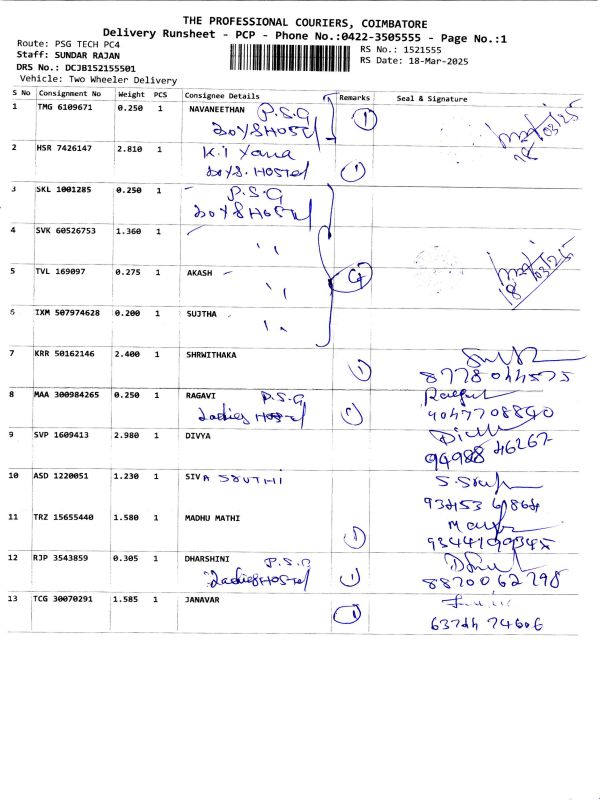 THE PROFESSIONAL COURIERS, COIMBATORE
Delivery Runsheet - PCP - Phone No.:0422-3505555 - Page No.:1
Route: PSG TECH PC4
Staff: SUNDAR RAJAN
DRS No.: DCJB152155501
Vehicle: Two Wheeler Delivery
RS No.: 1521555
RS Date: 18-Mar-2025
S No Consignment No Weight PCS Consignee Details Remarks Seal & Signature
1 TMG 6109671 0.250 1 NAVANEETHAN P.S.G 1
BOYS HOSTEL
18/03/25
2 HSR 7426147 2.810 1 K.I Yana
BOYS. HOSTEL 1
3 SKL 1001285 0.250 1 P.S.G
BOYS HOSTEL
4 SVK 60526753 1.360 1 "
5 TVL 169097 0.275 1 AKASH " 4
18/03/25
6 IXM 507974628 0.200 1 SUJTHA "
7 KRR 50162146 2.400 1 SHRWITHAKA 1
8778044575
8 MAA 300984265 0.250 1 RAGAVI P.S.G
Ladies Hostel 1 9047708840
9 SVP 1609413 2.980 1 DIVYA
94988 46267
10 ASD 1220051 1.230 1 SIVA SRUTHI
11 TRZ 15655440 1.580 1 MADHU MATHI 1
12 RJP 3543859 0.305 1 DHARSHINI P.S.G
Ladies HOSTEL 1 8870062798
13 TCG 30070291 1.585 1 JANAVAR 1